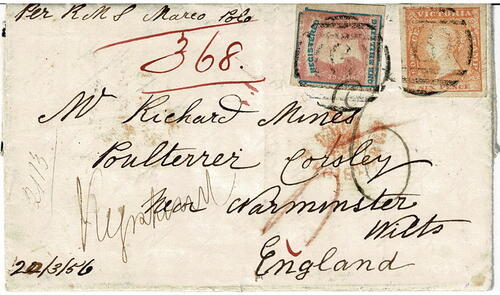 Per RMS Marco Polo
368.
REGISTERED
ONE SHILLING
VICTORIA
Mr Richard Mines
Poulterrer Corsley
Near Warminster
Wilts
England
Registered
22/3/56